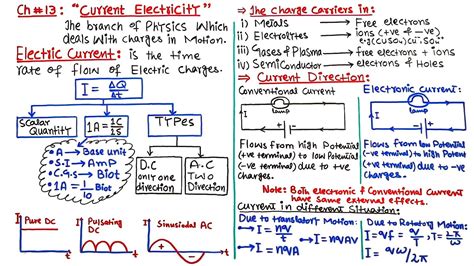 Ch#13: "Current Electricity"
The branch of Physics which
deals with charges in Motion.
Electric Current: is the time
rate of flow of Electric charges.
I = ΔQ/Δt
Scalar Quantity
1A = 1C/1S
Types
• A → Base unit
• S.I → Amp
• C.g.s → Biot
• 1A = 1/10 Biot
D.C only one direction
A.C Two Direction
Pure DC
Pulsating DC
Sinusoidal AC
I
t
I
t
I
+
-
t
⇒ The Charge Carriers in:
i) Metals → Free electrons
ii) Electrolytes → ions (+ve & -ve)
iii) Gases & Plasma → free electrons + ions
iv) SemiConductor → electrons & Holes
⇒ Current Direction:
Conventional Current
lamp
+ -
Flows from high Potential
(+ve terminal) to low Potential
(-ve terminal)
Electronic current:
lamp
+ -
Flows from low Potential
(-ve terminal) to high Potential
(+ve terminal)
Note: Both electronic & Conventional Current
have same external effects.
Current in different Situation:
Due to translatory Motion:
→ I = nqv/
→ I = nqAV
→ I = nqAV
Due to Rotatory Motion:
→ I = qf = q/T , T = 2π/ω
→ I = qω/2π